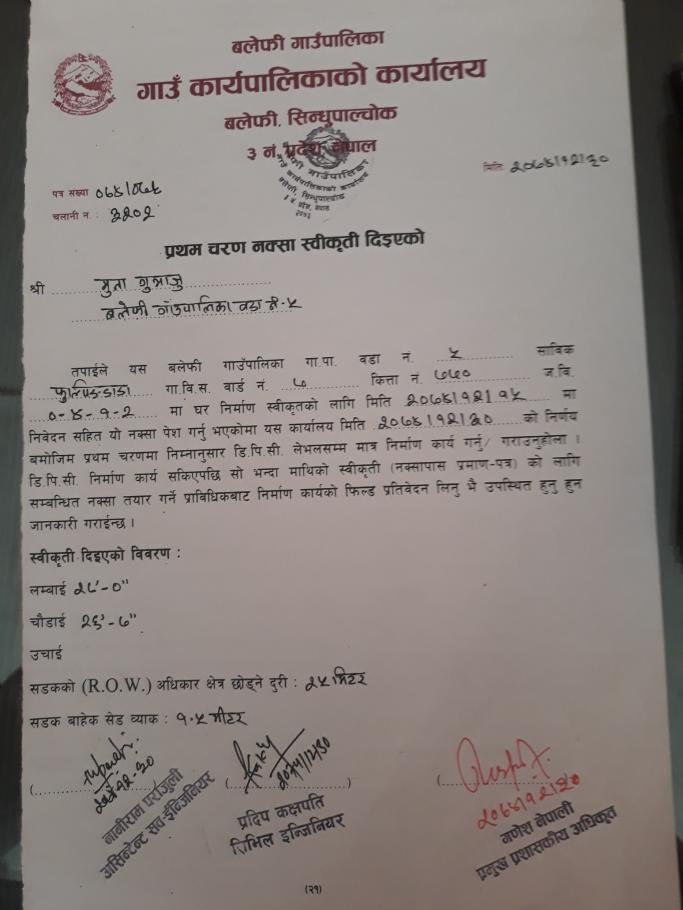 बलेफी गाउँपालिका
गाउँ कार्यपालिकाको कार्यालय
बलेफी, सिन्धुपाल्चोक
३ नं. प्रदेश, नेपाल
बलेफी गाउँपालिका
गाउँ कार्यपालिकाको कार्यालय
बलेफी, सिन्धुपाल्चोक
मिति २०७५।१२।३०
पत्र संख्या ०७५/०७६
चलानी नं. :
प्रथम चरण नक्सा स्वीकृती दिइएको
श्री
बलेफी गाँउपालिका वडा नं.-५
तपाईले यस बलेफी गाउँपालिका गा.पा. वडा नं. ५ साविक
गा.वि.स. वार्ड नं. ७ कित्ता नं. ७७० ज.वि.
०-४-१-२ मा घर निर्माण स्वीकृतको लागि मिति २०७५।१२।१५ मा
निवेदन सहित यो नक्सा पेश गर्नु भएकोमा यस कार्यालय मिति २०७५।१२।३० को निर्णय
बमोजिम प्रथम चरणमा निम्नानुसार डि.पि.सी. लेभलसम्म मात्र निर्माण कार्य गर्नु/ गराउनुहोला ।
डि.पि.सी. निर्माण कार्य सकिएपछि सो भन्दा माथिको स्वीकृती (नक्सापास प्रमाण-पत्र) को लागि
सम्बन्धित नक्सा तयार गर्ने प्राविधिकबाट निर्माण कार्यको फिल्ड प्रतिवेदन लिनु भै उपस्थित हुनु हुन
जानकारी गराईन्छ ।
स्वीकृती दिइएको विवरण :
लम्बाई २८'-०"
चौडाई २६'-७"
उचाई
सडकको (R.O.W.) अधिकार क्षेत्र छोड्ने दुरी : २५ मिटर
सडक बाहेक सेड व्याक : १.५ मीटर
नानीराम पराजुली
असिन्टेन्ट सव-इन्जिनियर
प्रदिप कक्षपति
सिभिल इन्जिनियर
२०७५।१२।३०
गणेश नेपाली
प्रमुख प्रशासकीय अधिकृत
(२१)